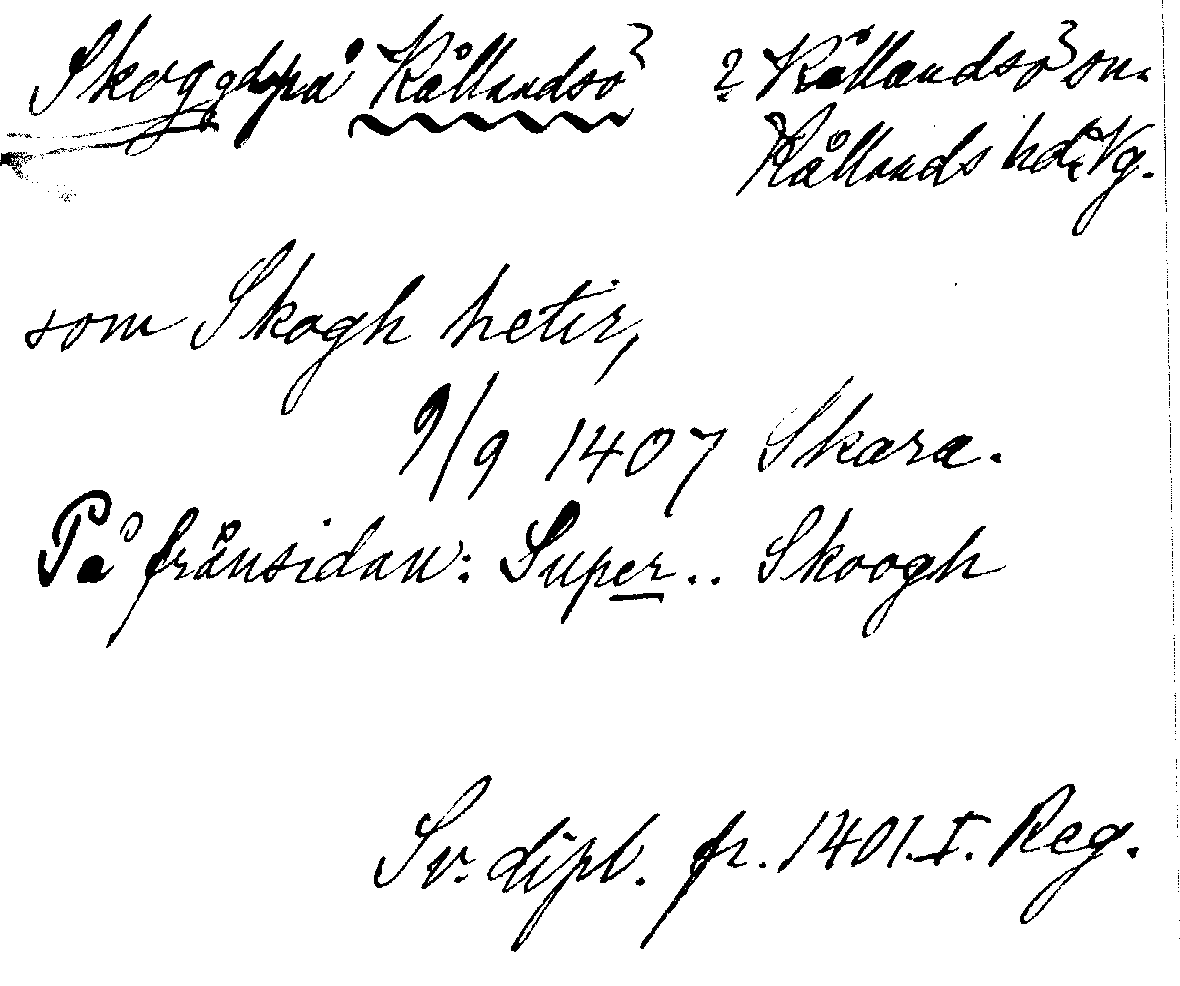 Skog gd på Kållandsö ? Kållandsö sn.
Kållands hd, Vg.
som Skogh hetir,
9/9 1407 Skara.
På frånsidan: Super .. Skoogh
Sv. dipl. fr. 1401. I. Reg.